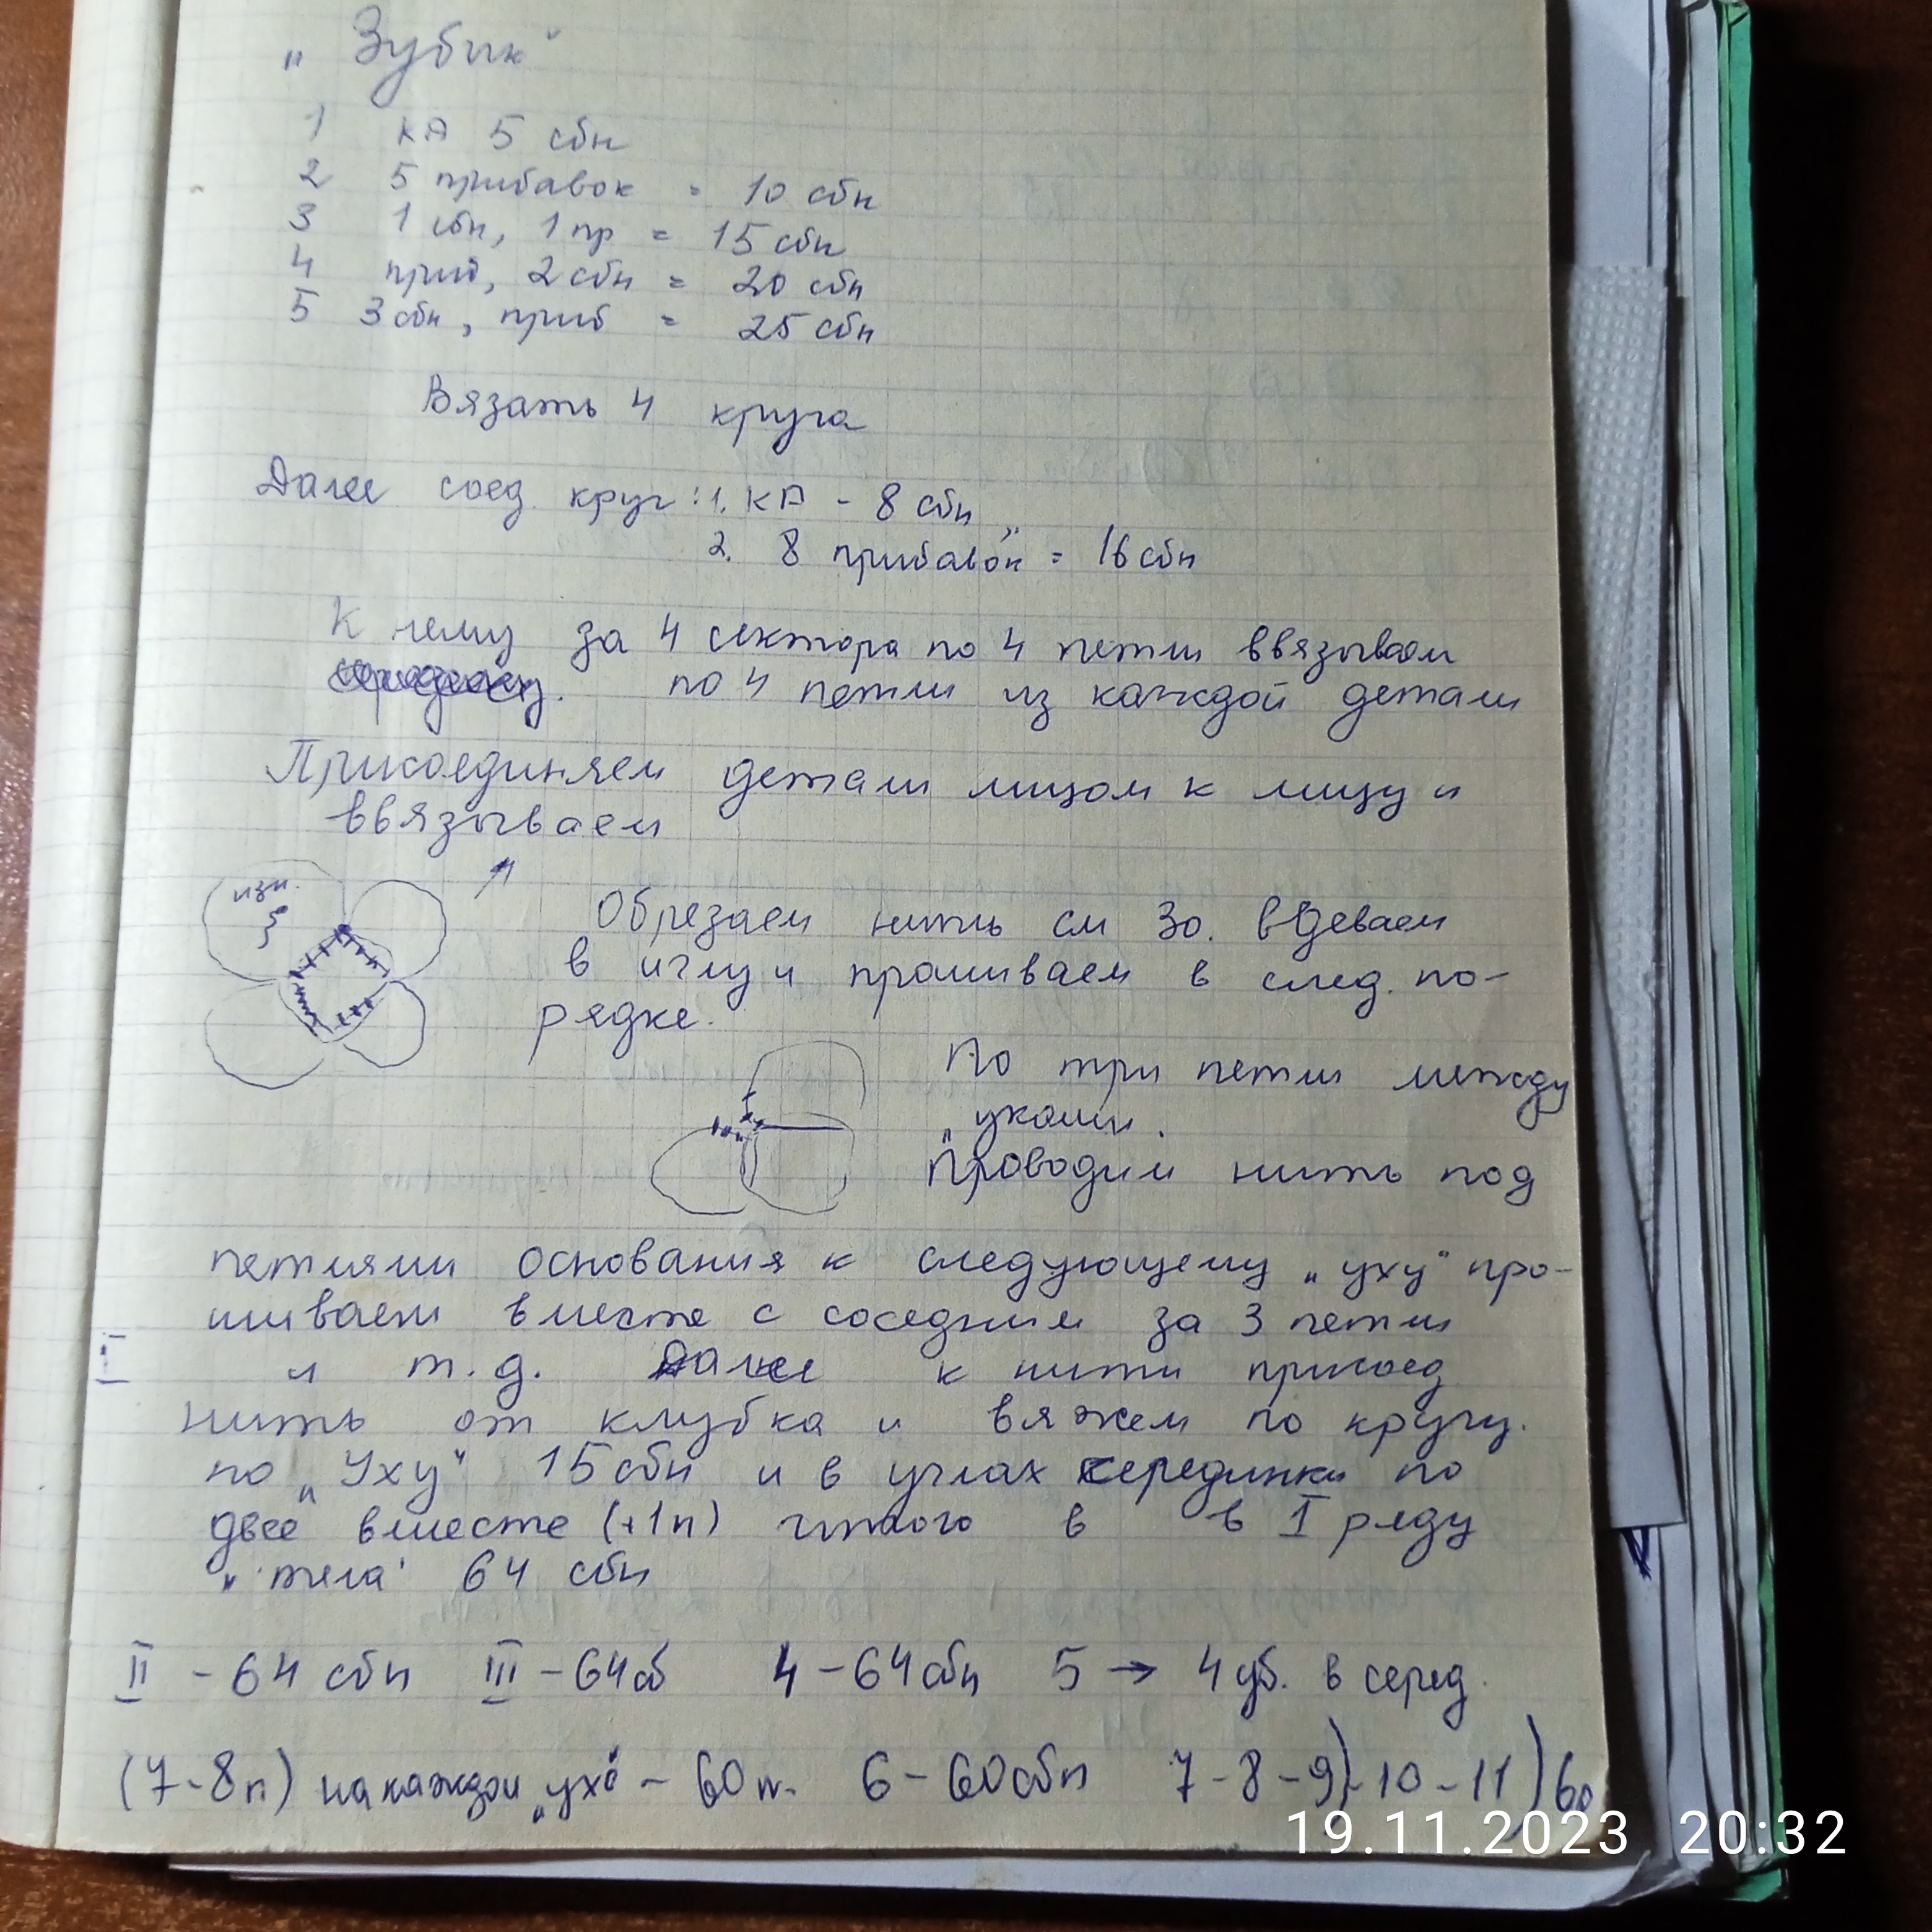 „Зубик“
1 КА 5 сбн
2 5 прибавок = 10 сбн
3 1 сбн, 1 пр = 15 сбн
4 приб, 2 сбн = 20 сбн
5 3 сбн, приб = 25 сбн
Вязать 4 круга
Далее соед. круг: 1. КА - 8 сбн
2. 8 прибавок = 16 сбн
К нему за 4 сектора по 4 петли ввязываем
по 4 петли из каждой детали
Присоединяем детали лицом к лицу и
ввязываем
изн.
Обрезаем нить см 30. вдеваем
в иглу и прошиваем в след. по-
рядке.
По три петли между
„ухами.
Проводим нить под
петлями основания к следующему „уху“ про-
шиваем вместе с соседним за 3 петли
I и т.д. Далее к нити присоед
нить от клубка и вяжем по кругу.
по „Уху“ 15 сбн и в углах серединки по
двее вместе (+1п) итого в в I ряду
„тела“ 64 сбн
II - 64 сбн III - 64 сб 4 - 64 сбн 5 → 4 уб. в серед.
(7-8п) на каждом „ухе“ - 60 п. 6 - 60 сбн 7-8-9)-10-11) 60
19.11.2023 20:32